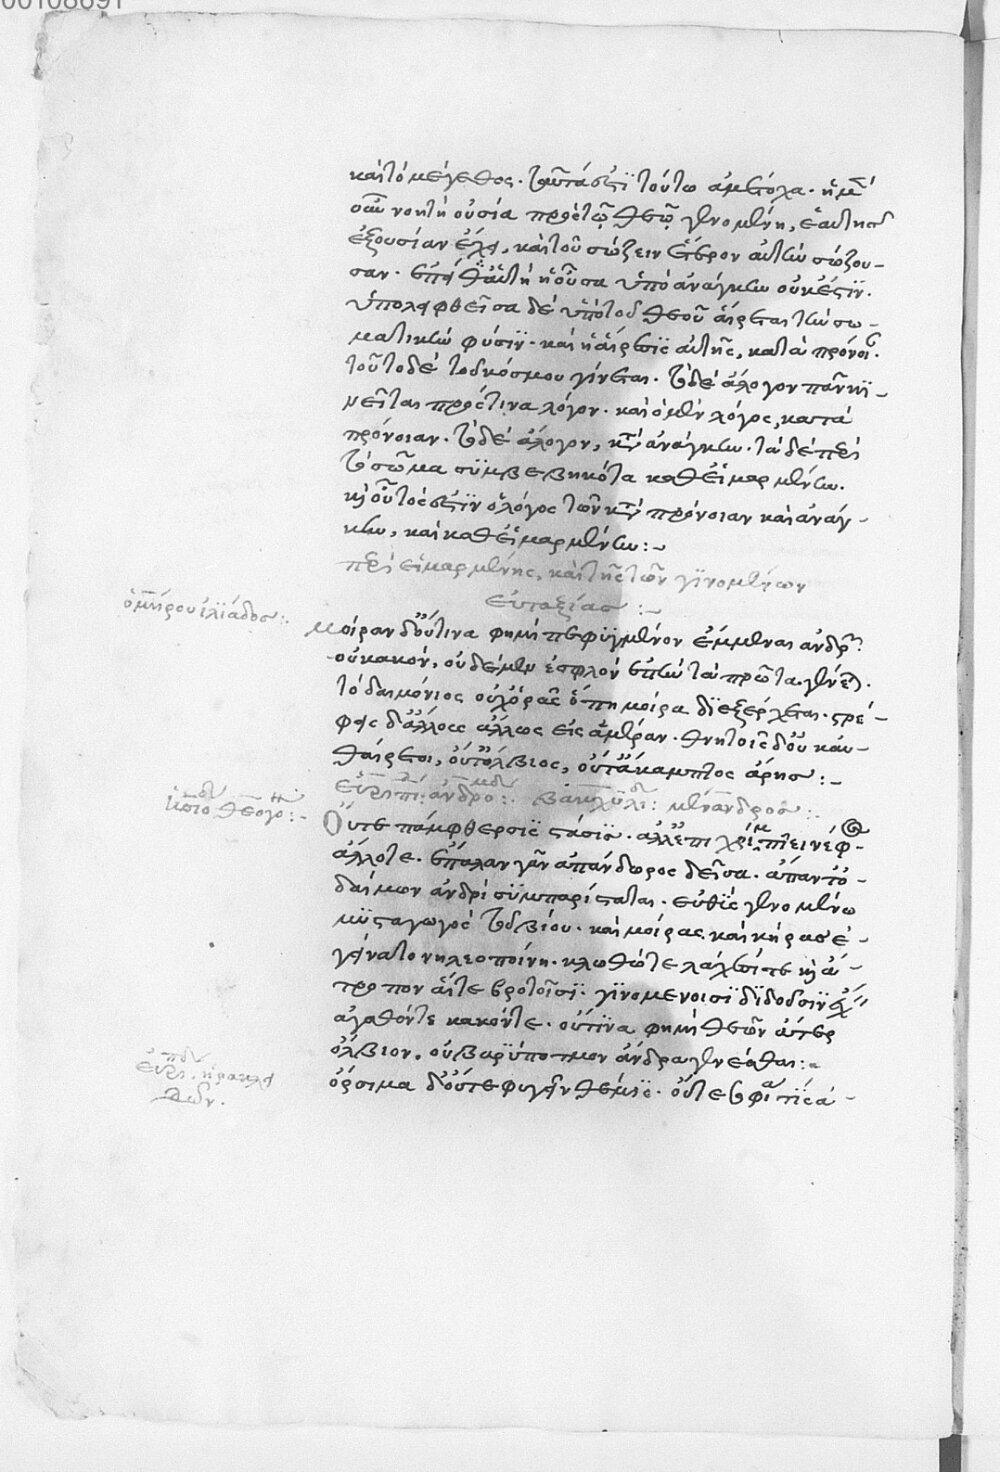 00108691
καὶ τὸ μέγεθος. τὸ πᾶν τάστϊ τούτω ἀμέτοχα. ἡ μὲν
οὖν νοητὴ οὐσία πρὸς τῷ θεῷ γενομένη, ἑαυτῆς
ἐξουσίαν ἔχει, καὶ τοῦ σώζειν ἕτερον αὐτὴν σώζου-
σαν. ἐπεὶ αὐτὴ ἡ οὖσα ὑπὸ ἀνάγκην οὐκ ἔστϊν.
ὑπολειφθεῖσα δὲ ὑπὸ τοῦ θεοῦ αἱρεῖται τὴν σω-
ματικὴν φύσϊν. καὶ ἡ αἵρεσϊς αὐτῆς, κατὰ πρόνοι.
τοῦτο δὲ τοῦ κόσμου γίνεται. τὸ δὲ ἄλογον πᾶν κϊ-
νεῖται πρός τινα λόγον. καὶ ὁ μὲν λόγος, κατὰ
πρόνοιαν. τὸ δὲ ἄλογον, κατ' ἀνάγκην. τὰ δὲ περὶ
τὸ σῶμα συμβεβηκότα καθ' εἱμαρμένην.
καὶ οὗτός ἐστϊν ὁ λόγος τῶν κατὰ πρόνοιαν καὶ ἀνάγ-
κην, καὶ καθ' εἱμαρμένην:-
περὶ εἱμαρμένης, καὶ τῆς τῶν γϊνομένων
εὐταξίας:-
ὁμήρου ἰλϊάδος:.
μοίραν δ' οὔτινα φημὶ πεφϋγμένον ἔμμεναι ἀνδρῶν
οὐ κακὸν, οὐδὲ μὲν ἐσθλὸν ἐπὴν τὰ πρῶτα γένηται.
τὸ δαιμόνιος οὐχ ὁρᾶς ὅπη μοίρα διεξέρχεται. στρέ-
φει δ' ἄλλους ἄλλως εἰς ἁμέραν. θνητοῖς δ' οὐκ αὐ-
θαίρετοι, οὔτ' ὄλβιος, οὔτ' ἄκαμπτος ἄρης:-
εὐριπί: ἀνδρο:. βακχυλί: μένανδρος:.
θεογο:-
Οὔτε πάμφθερσϊς στάσϊς. ἀλλ' ἐπιχρίμπτει νέφος
ἄλλοτε. ἐπ' ἄλλαν γᾶν ἁ πάνδωρος δεῖσα. ἅπαντο-
δαίμων ἀνδρὶ συμπαρίσταται. εὐθϋς γενομένω
μϋσταγωγὸς τοῦ βίου. καὶ μοίρας καὶ κήρας ἐ-
γείνατο νηλεοποίνη. κλωθώ τε λάχεσίν τε καὶ ἄ-
τροπον αἵτε βροτοῖσϊ. γϊνομένοισϊ δϊδοῦσϊν ἔχειν
ἀγαθόν τε κακόν τε. οὔτϊνα φημὶ θεῶν ἄτερ
ὄλβιον, οὐ βαρϋποτμον ἄνδρα γενέσθαι:-
εὐρι. ἡρακλει
δῶν.
ὄρσιμα δ' οὔτε φυγεῖν θέμϊς. οὔτε σοφίᾳ τϊς ἀ-